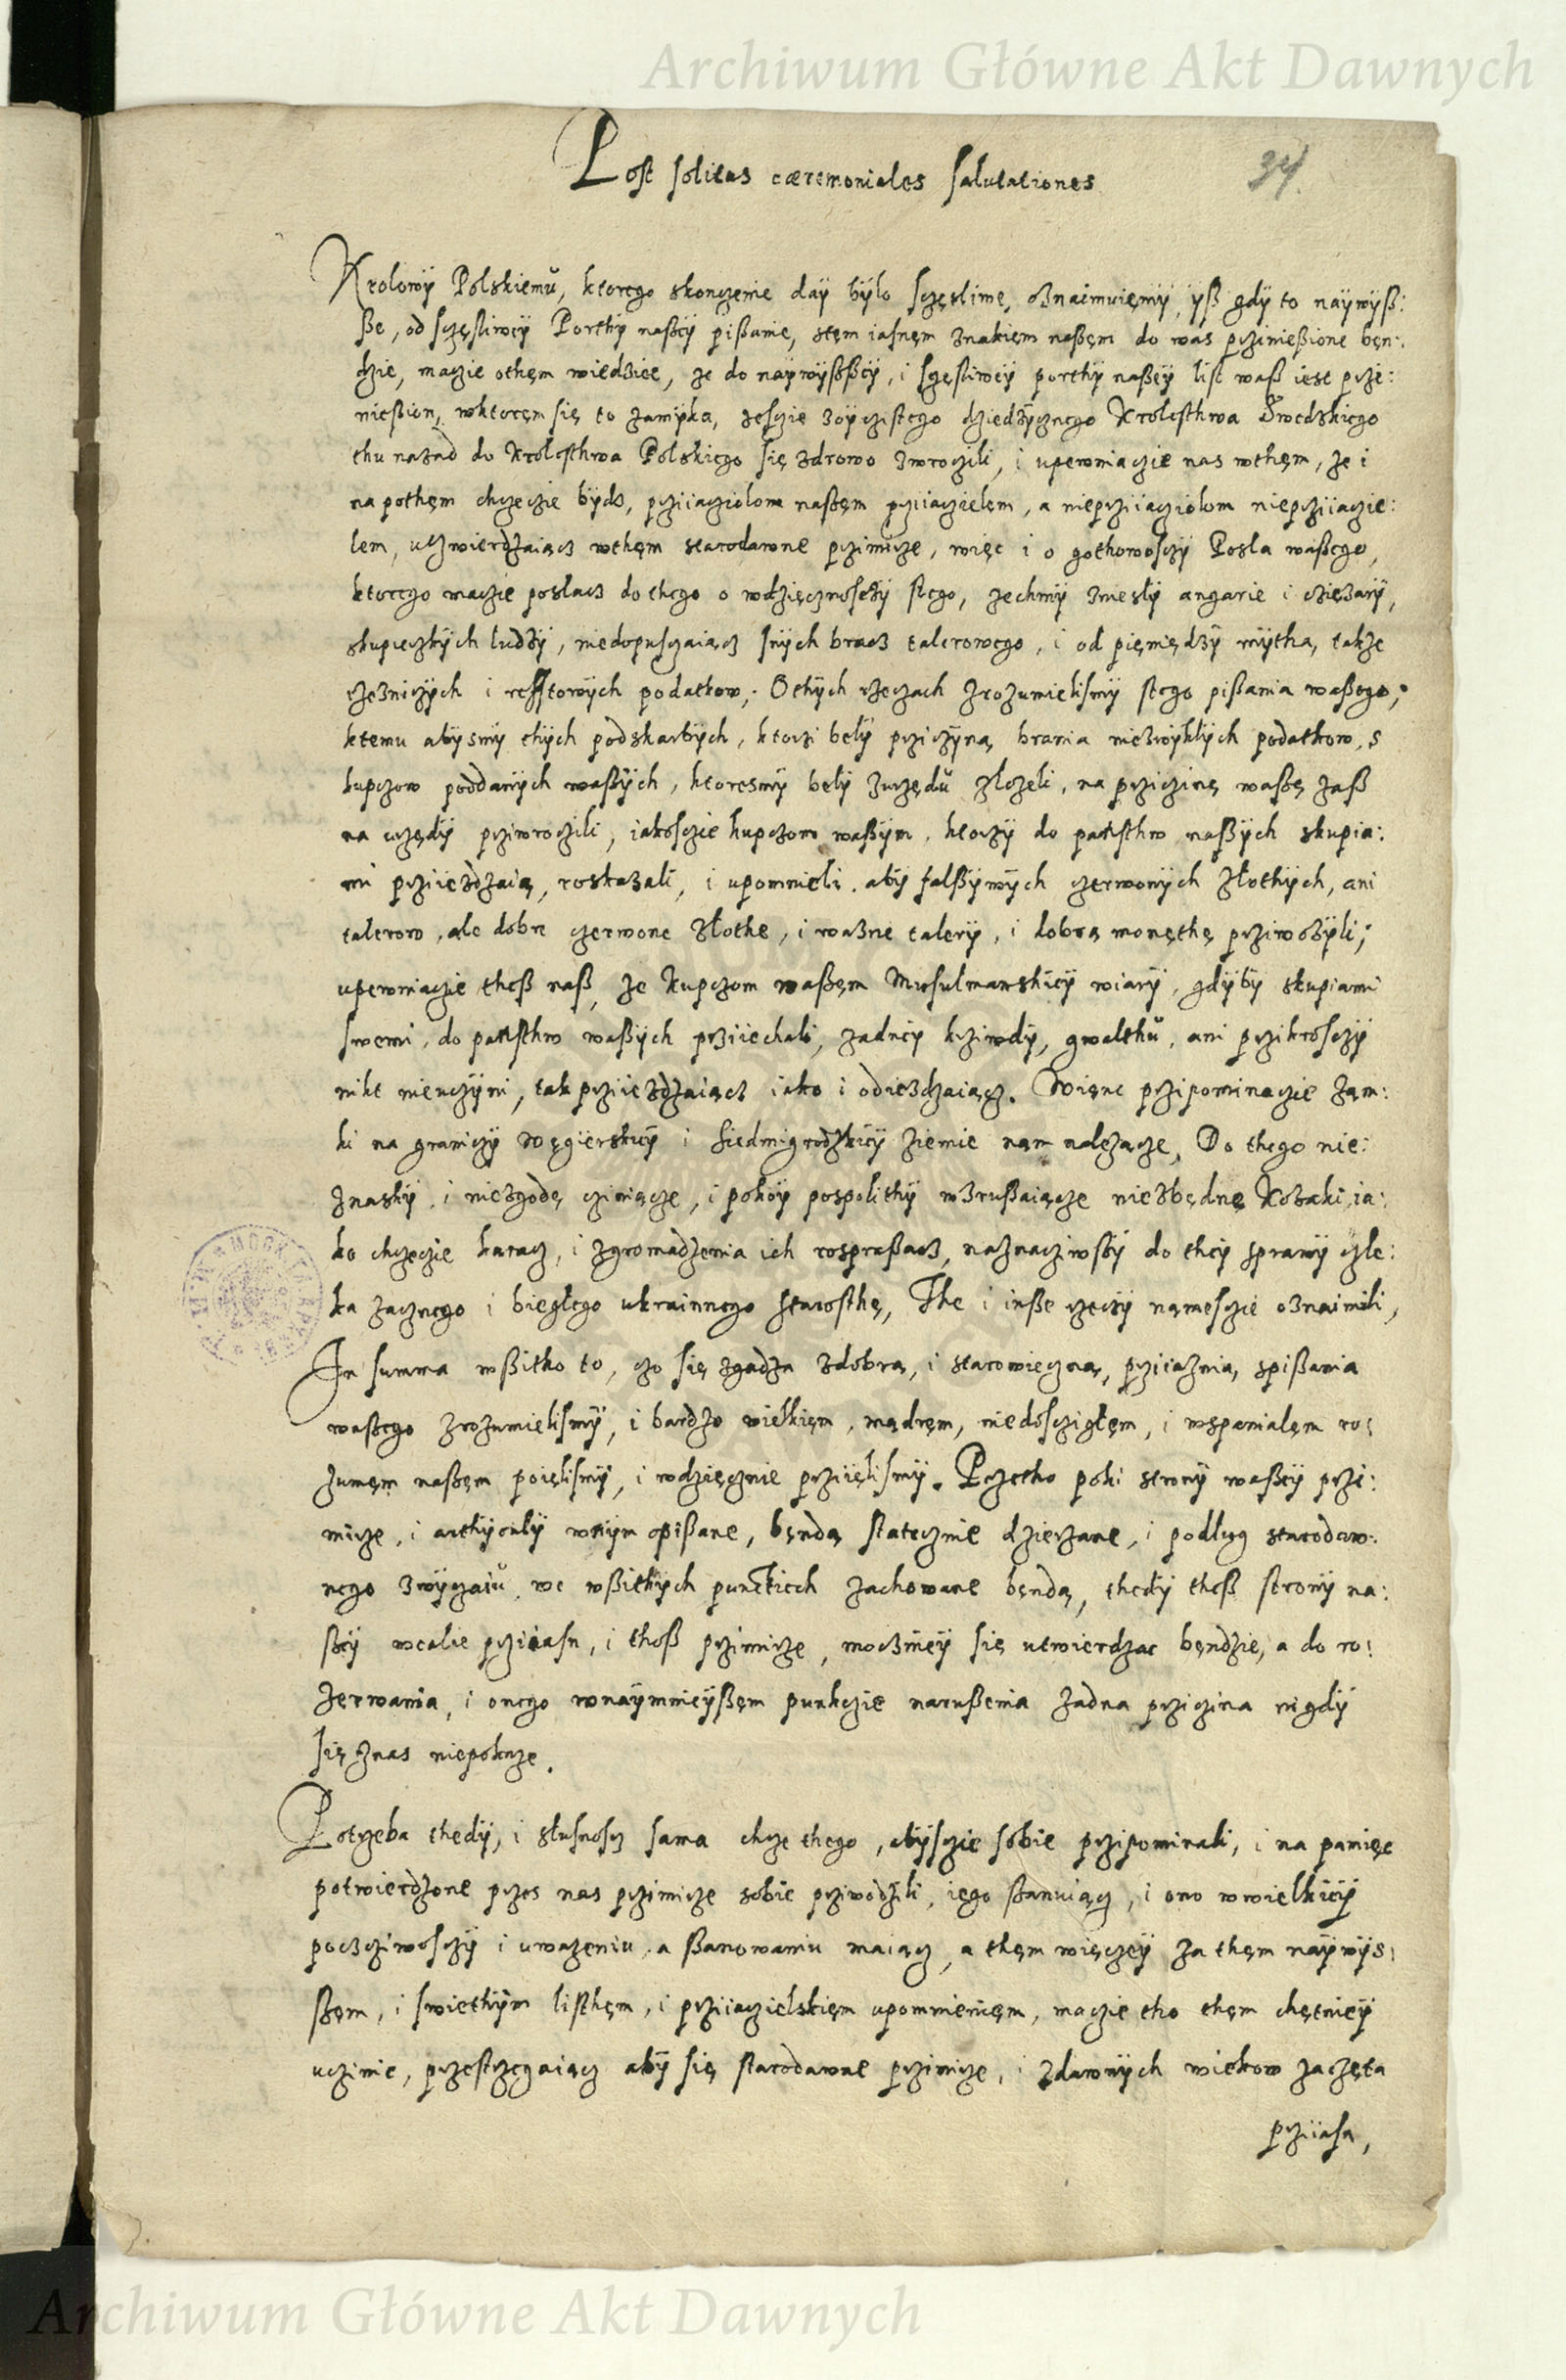 Archiwum Główne Akt Dawnych
Post solitas cæremoniales salutationes
34
Krolowÿ Polskiemŭ, ktorego skonczenie daÿ bÿlo sczęsliwe, oznaimuięmÿ, ÿß gdÿ to naÿwÿß:
ße, od sczęsliweÿ Porthÿ naßeÿ pißanie, stęm iasnęm znakięm naßęm do was przinießione bęn:
dzie, macie othęm wiedziec, ze do naÿwÿßßeÿ, i sczęsliweÿ porthÿ naßeÿ list waß iest prze:
nießion, wktoręm się to zamÿka, zescie zoÿczistego dziedzÿcznego Krolesthwa Swedzkiego
thu nazad do Krolesthwa Polskiego się zdrowo zwroczili, i upewniaczie nas wthęm, ze i
na pothęm chczeczie bÿdz, prziiacziolom naßęm prziiaczielęm, a nieprziiacziolom nieprziiaczie:
lem, utzwierdzaiącz wthęm starodawne przimiцze, więc i o gothowosczÿ Posla waßego,
ktorego maczie poslacz do thego o wdzięcznosczÿ stego, zechmÿ zniesly angarie i cziężarÿ,
skupieczkÿch ludzÿ, niedopusczaiącz snÿch bracz talerowego, i od pięniędzÿ mÿtha, takze
rzeznicÿch i resstowÿch podatkow; Othÿch rzeczach zrozumielismÿ stego pißania waßego;
ktemu abÿsmÿ thÿch podskarbÿch, ktorzi belÿ prziczÿną brania niezwÿklÿch podatkow, s
kupczow poddanÿch waßÿch, ktoresmÿ belÿ zurzędŭ zlozeli, na prziczinę waßę zaß
na urzędÿ prziwroczili, iakosczie kupczom waßÿm, ktorzÿ do pansthw naßÿch skupia:
mi prziiezdzaią, roskazali, i upomnieli, abÿ falßÿwÿch czerwonÿch złothÿch, ani
talerow, ale dobre czerwone złothe, i wazne talerÿ, i dobrą monęthę prziwozÿli;
upewniaczie theß naß, ze kupczom waßęm Musulmanskieÿ wiarÿ, gdÿbÿ skupiami
swemi, do pansthw waßÿch prziiechali, zadneÿ krziwdÿ, gwalthŭ, ani przikrosczÿ
nikt nieuczÿni, tak prziiezdzaiącz iako i odiezdzaiącz. Więnc przipominaczie zam:
ki na graniczÿ Węgierskieÿ i Siedmigrodzkieÿ ziemie nam nalezącze, Do thego nie:
znaskÿ, i niezgodę cziniącze, i pokoÿ pospolithÿ wzrußaiącze niezbędne Kozaki, ia:
ko chczeczie karacz, i zgromadzenia ich rospraßacz, naznacziwßÿ do theÿ sprawÿ czle:
ka zacznego i biegłego ukrainnego starosthę, The i inße rzeczÿ namesczie oznaimili,
In summa wßitko to, czo się zgadza zdobrą, i starowieczną, prziiaznią, spißania
waßego zrozumielismÿ, i bardzo wielkięm, mądręm, niedoscziglęm, i wspanialęm ro:
zumęm naßęm poięlismÿ, i wdzięcznie prziięlismÿ. Przetho poki stronÿ waßeÿ przi:
micze, i arthÿculÿ wnÿm opißane, będą statecznie dzierzane, i podlug starodaw:
nego zwÿczaiŭ, we wßitkÿch punctiech zachowane bęndą, thedÿ theß stronÿ na:
ßeÿ wcalie prziiasn, i thoß przimicze, moczneÿ się utwierdzac bęndzie, a do ro:
zerwania, i onego wnaÿmnieÿßęm punkczie narußenia zadna prziczina nigdÿ
się znas niepokaze.
Potrzeba thedÿ, i slusnoscz sama chcze thego, abÿsczie sobie przipominali, i na pamięc
potwierdzone przes nas przimicze sobie prziwodzili, iego ßanuiącz, i ono wwielkieÿ
poczcziwosczÿ i uwazeniu, a ßanowaniu maiącz, a thęm więczeÿ za thęm naÿwÿs:
ßęm, i swiethÿm listhęm, i prziiaczielskięm upomnienięm, maczie tho thęm chętnieÿ
uczinic, przestrzegaiącz abÿ się starodawne przimicze, i zdawnÿch wiekow zaczęta
prziiasn,
Archiwum Główne Akt Dawnych